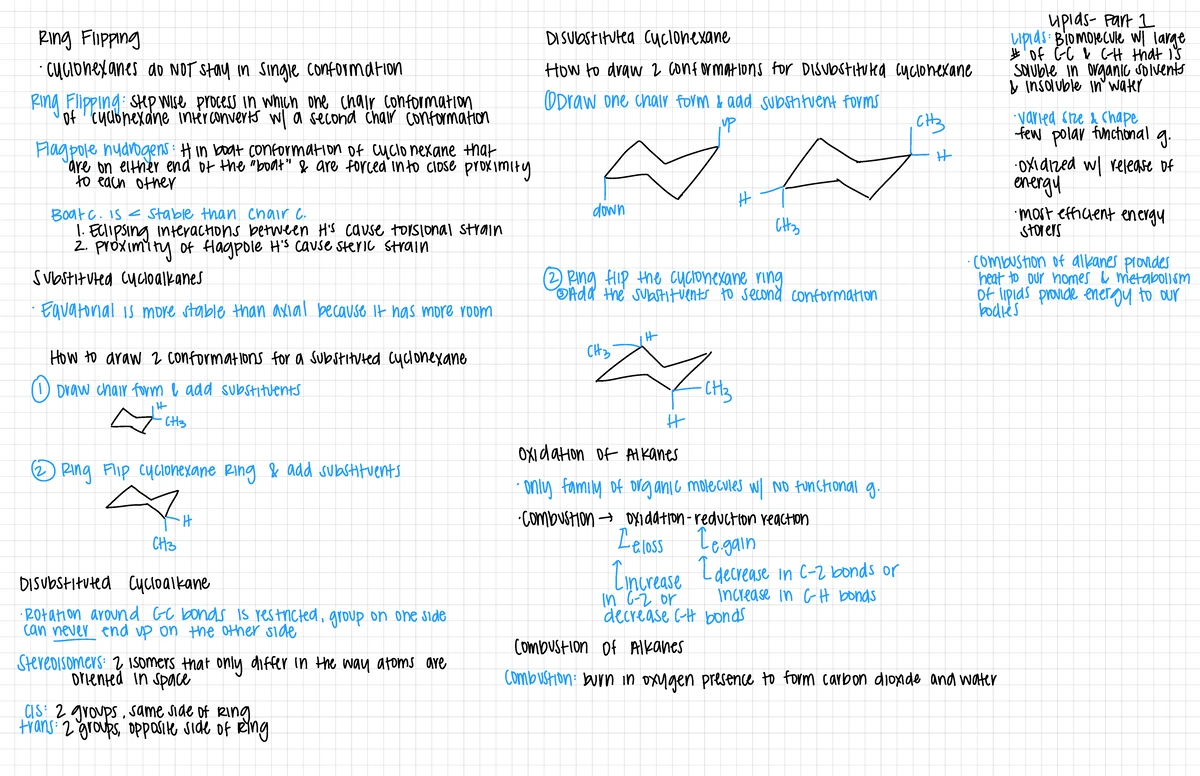 Ring Flipping
· Cyclohexanes do NOT stay in single conformation
Ring Flipping: stepwise process in which one chair conformation
of cyclohexane interconverts w/ a second chair conformation
Flagpole hydrogens: H in boat conformation of cyclohexane that
are on either end of the "boat" & are forced into close proximity
to each other
Boat c. is < stable than chair c.
1. Eclipsing interactions between H's cause torsional strain
2. Proximity of flagpole H's cause steric strain
Substituted Cycloalkanes
· Equatorial is more stable than axial because it has more room
How to draw 2 conformations for a substituted cyclohexane
① Draw chair form & add substituents
H
CH3
② Ring Flip cyclohexane Ring & add substituents
H
CH3
Disubstituted Cycloalkane
· Rotation around C-C bonds is restricted, group on one side
can never end up on the other side
Stereoisomers: 2 isomers that only differ in the way atoms are
oriented in space
Cis: 2 groups, same side of Ring
trans: 2 groups, opposite side of Ring
Disubstituted Cyclohexane
How to draw 2 conformations for Disubstituted cyclohexane
① Draw one chair form & add substituent forms
up
down
CH3
H
H
CH3
② Ring flip the cyclohexane ring
③ Add the substituents to second conformation
H
CH3
CH3
H
Oxidation of Alkanes
· Only family of organic molecules w/ NO functional g.
· Combustion → oxidation-reduction reaction
e.loss
e.gain
increase
in C-Z or
decrease C-H bonds
decrease in C-Z bonds or
increase in C-H bonds
Combustion of Alkanes
Combustion: burn in oxygen presence to form carbon dioxide and water
Lipids- Part 1
Lipids: Biomolecule w/ large
# of C-C & C-H that is
soluble in organic solvents
& insoluble in water
· varied size & shape
few polar functional g.
· oxidized w/ release of
energy
· most efficient energy
storers
· Combustion of alkanes provides
heat to our homes & metabolism
of lipids provide energy to our
bodies